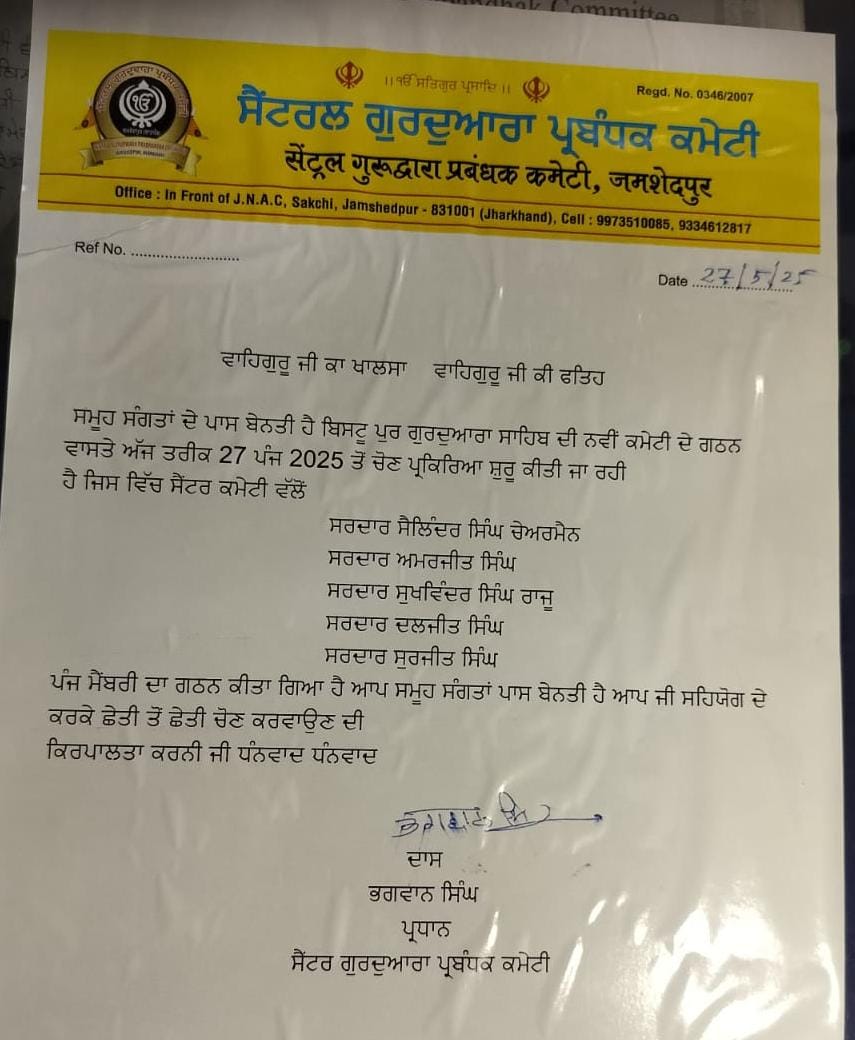 ndhak Committee
।।ੴ ਸਤਿਗੁਰ ਪ੍ਰਸਾਦਿ।।
Regd. No. 0346/2007
ਸੈਂਟਰਲ ਗੁਰਦੁਆਰਾ ਪ੍ਰਬੰਧਕ ਕਮੇਟੀ
सेंट्रल गुरूद्वारा प्रबंधक कमेटी, जमशेदपुर
Office : In Front of J.N.A.C, Sakchi, Jamshedpur - 831001 (Jharkhand), Cell : 9973510085, 9334612817
Ref No. ..........................
Date 27/5/25
ਵਾਹਿਗੁਰੂ ਜੀ ਕਾ ਖਾਲਸਾ ਵਾਹਿਗੁਰੂ ਜੀ ਕੀ ਫਤਿਹ
ਸਮੂਹ ਸੰਗਤਾਂ ਦੇ ਪਾਸ ਬੇਨਤੀ ਹੈ ਬਿਸਟੂ ਪੁਰ ਗੁਰਦੁਆਰਾ ਸਾਹਿਬ ਦੀ ਨਵੀਂ ਕਮੇਟੀ ਦੇ ਗਠਨ
ਵਾਸਤੇ ਅੱਜ ਤਰੀਕ 27 ਪੰਜ 2025 ਤੋਂ ਚੋਣ ਪ੍ਰਕਿਰਿਆ ਸ਼ੁਰੂ ਕੀਤੀ ਜਾ ਰਹੀ
ਹੈ ਜਿਸ ਵਿੱਚ ਸੈਂਟਰ ਕਮੇਟੀ ਵੱਲੋਂ
ਸਰਦਾਰ ਸੈਲਿੰਦਰ ਸਿੰਘ ਚੇਅਰਮੈਨ
ਸਰਦਾਰ ਅਮਰਜੀਤ ਸਿੰਘ
ਸਰਦਾਰ ਸੁਖਵਿੰਦਰ ਸਿੰਘ ਰਾਜੂ
ਸਰਦਾਰ ਦਲਜੀਤ ਸਿੰਘ
ਸਰਦਾਰ ਸੁਰਜੀਤ ਸਿੰਘ
ਪੰਜ ਮੈਂਬਰੀ ਦਾ ਗਠਨ ਕੀਤਾ ਗਿਆ ਹੈ ਆਪ ਸਮੂਹ ਸੰਗਤਾਂ ਪਾਸ ਬੇਨਤੀ ਹੈ ਆਪ ਜੀ ਸਹਿਯੋਗ ਦੇ
ਕਰਕੇ ਛੇਤੀ ਤੋਂ ਛੇਤੀ ਚੋਣ ਕਰਵਾਉਣ ਦੀ
ਕਿਰਪਾਲਤਾ ਕਰਨੀ ਜੀ ਧੰਨਵਾਦ ਧੰਨਵਾਦ
ਦਾਸ
ਭਗਵਾਨ ਸਿੰਘ
ਪ੍ਰਧਾਨ
ਸੈਂਟਰ ਗੁਰਦੁਆਰਾ ਪ੍ਰਬੰਧਕ ਕਮੇਟੀ